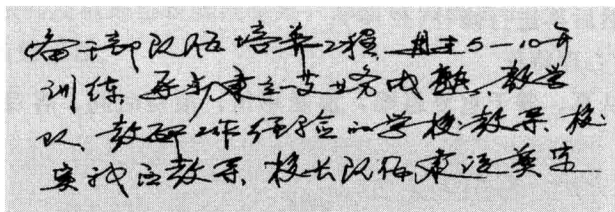 备干部队伍培养工程,用未5—10年
训练,逐步建立一支业务成熟、教学
队、教研工作经验的学校教导、校
实我区教导、校长队伍建设奠定